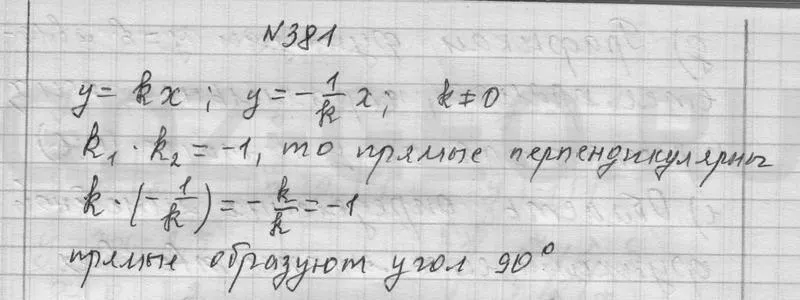 N381
y = kx; y = -1/k x; k ≠ 0
k₁ · k₂ = -1, то прямые перпендикулярны
k · (-1/k) = -k/k = -1
прямые образуют угол 90°